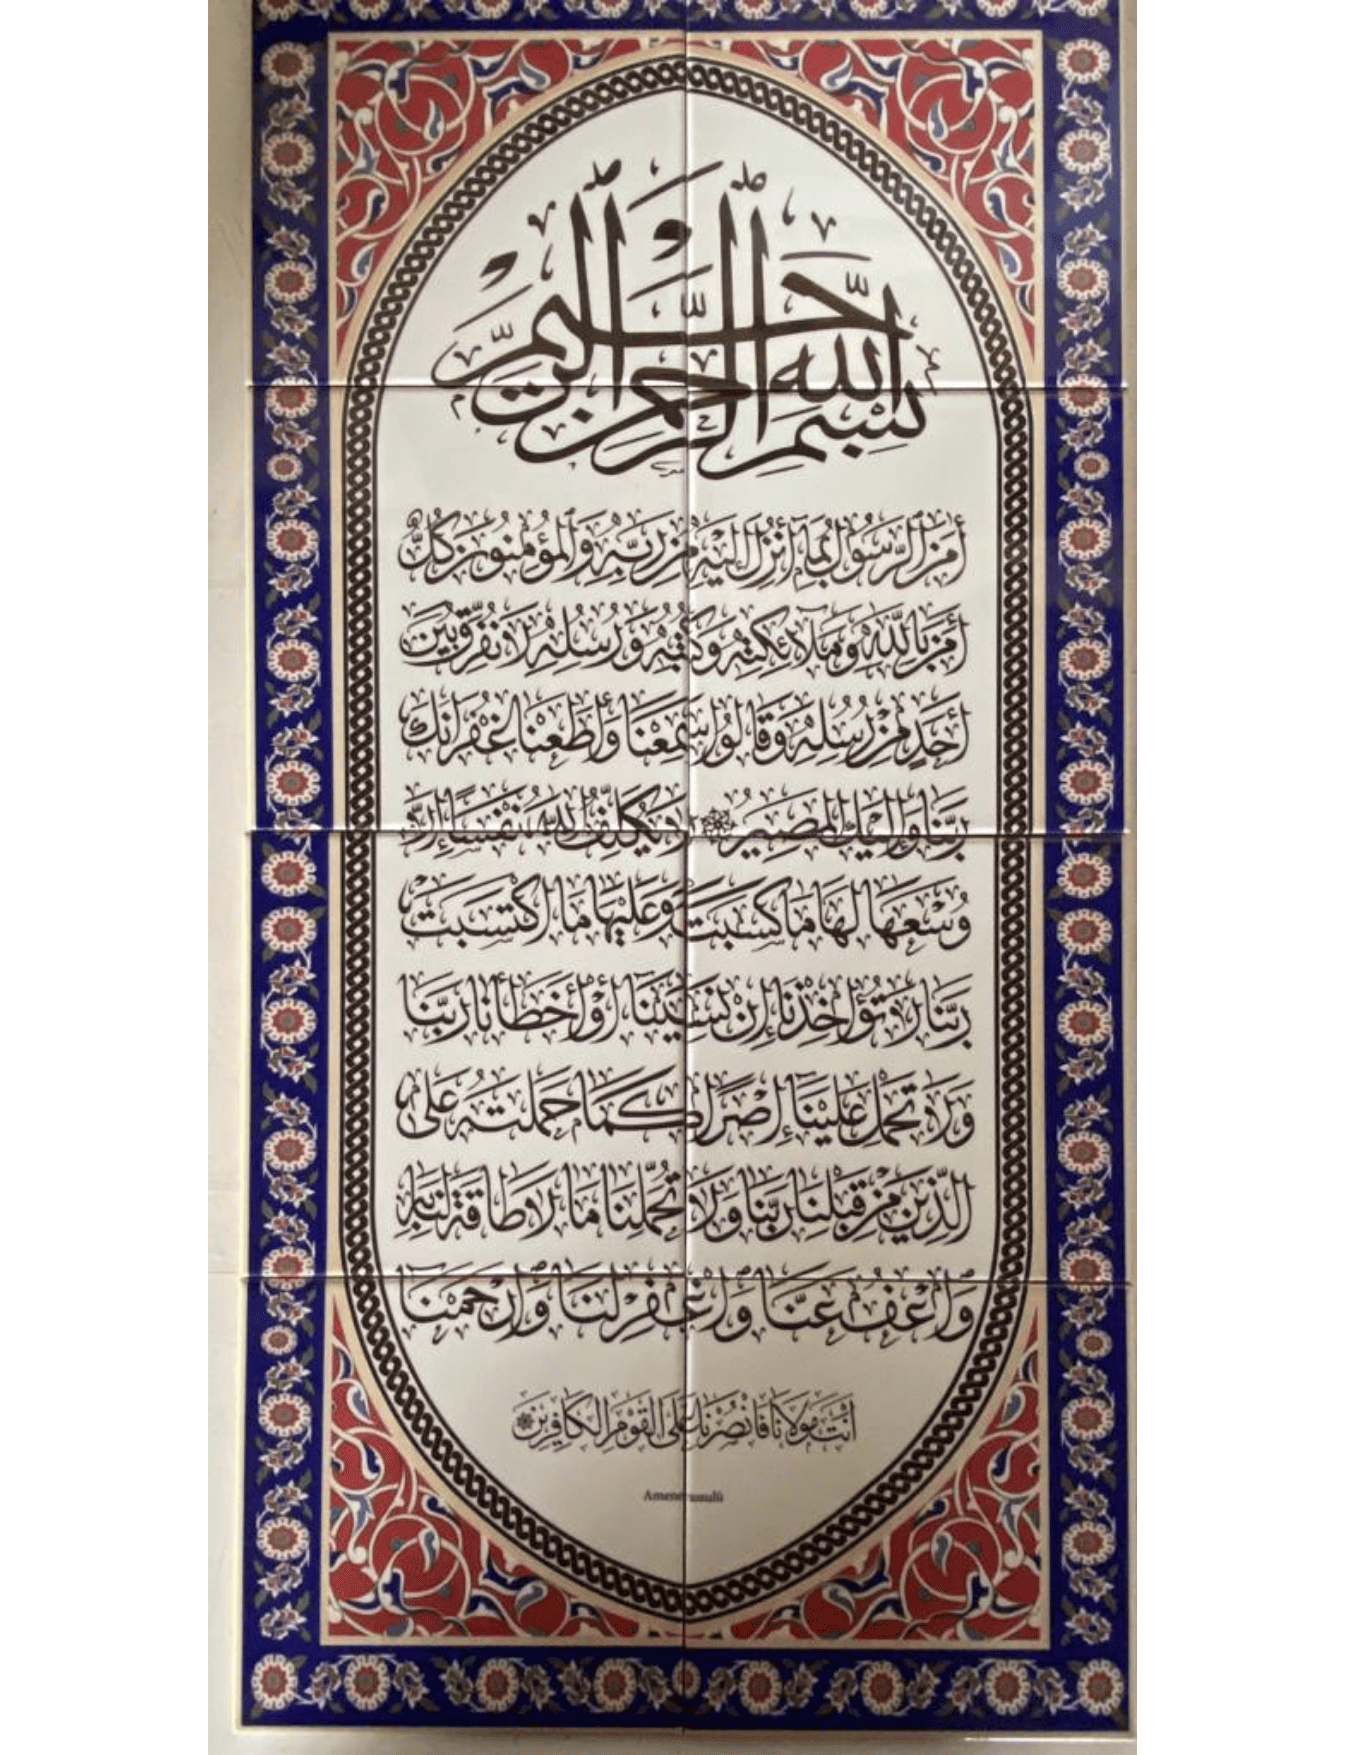 بسم الله الرحمن الرحيم
أمن الرسول بما أنزل إليه من ربه والمؤمنون كل
أمن بالله وملآئكته وكتبه ورسله لا نفرق بين
أحد من رسله وقالوا سمعنا وأطعنا غفرانك
ربنا وإليك المصير لا يكلف الله نفسا إلا
وسعها لها ما كسبت وعليها ما اكتسبت
ربنا لا تؤاخذنا إن نسينا أو أخطأنا ربنا
ولا تحمل علينا إصرا كما حملته على
الذين من قبلنا ربنا ولا تحملنا ما لا طاقة لنا به
واعف عنا واغفر لنا وارحمنا
أنت مولانا فانصرنا على القوم الكافرين
Amenerrasulü